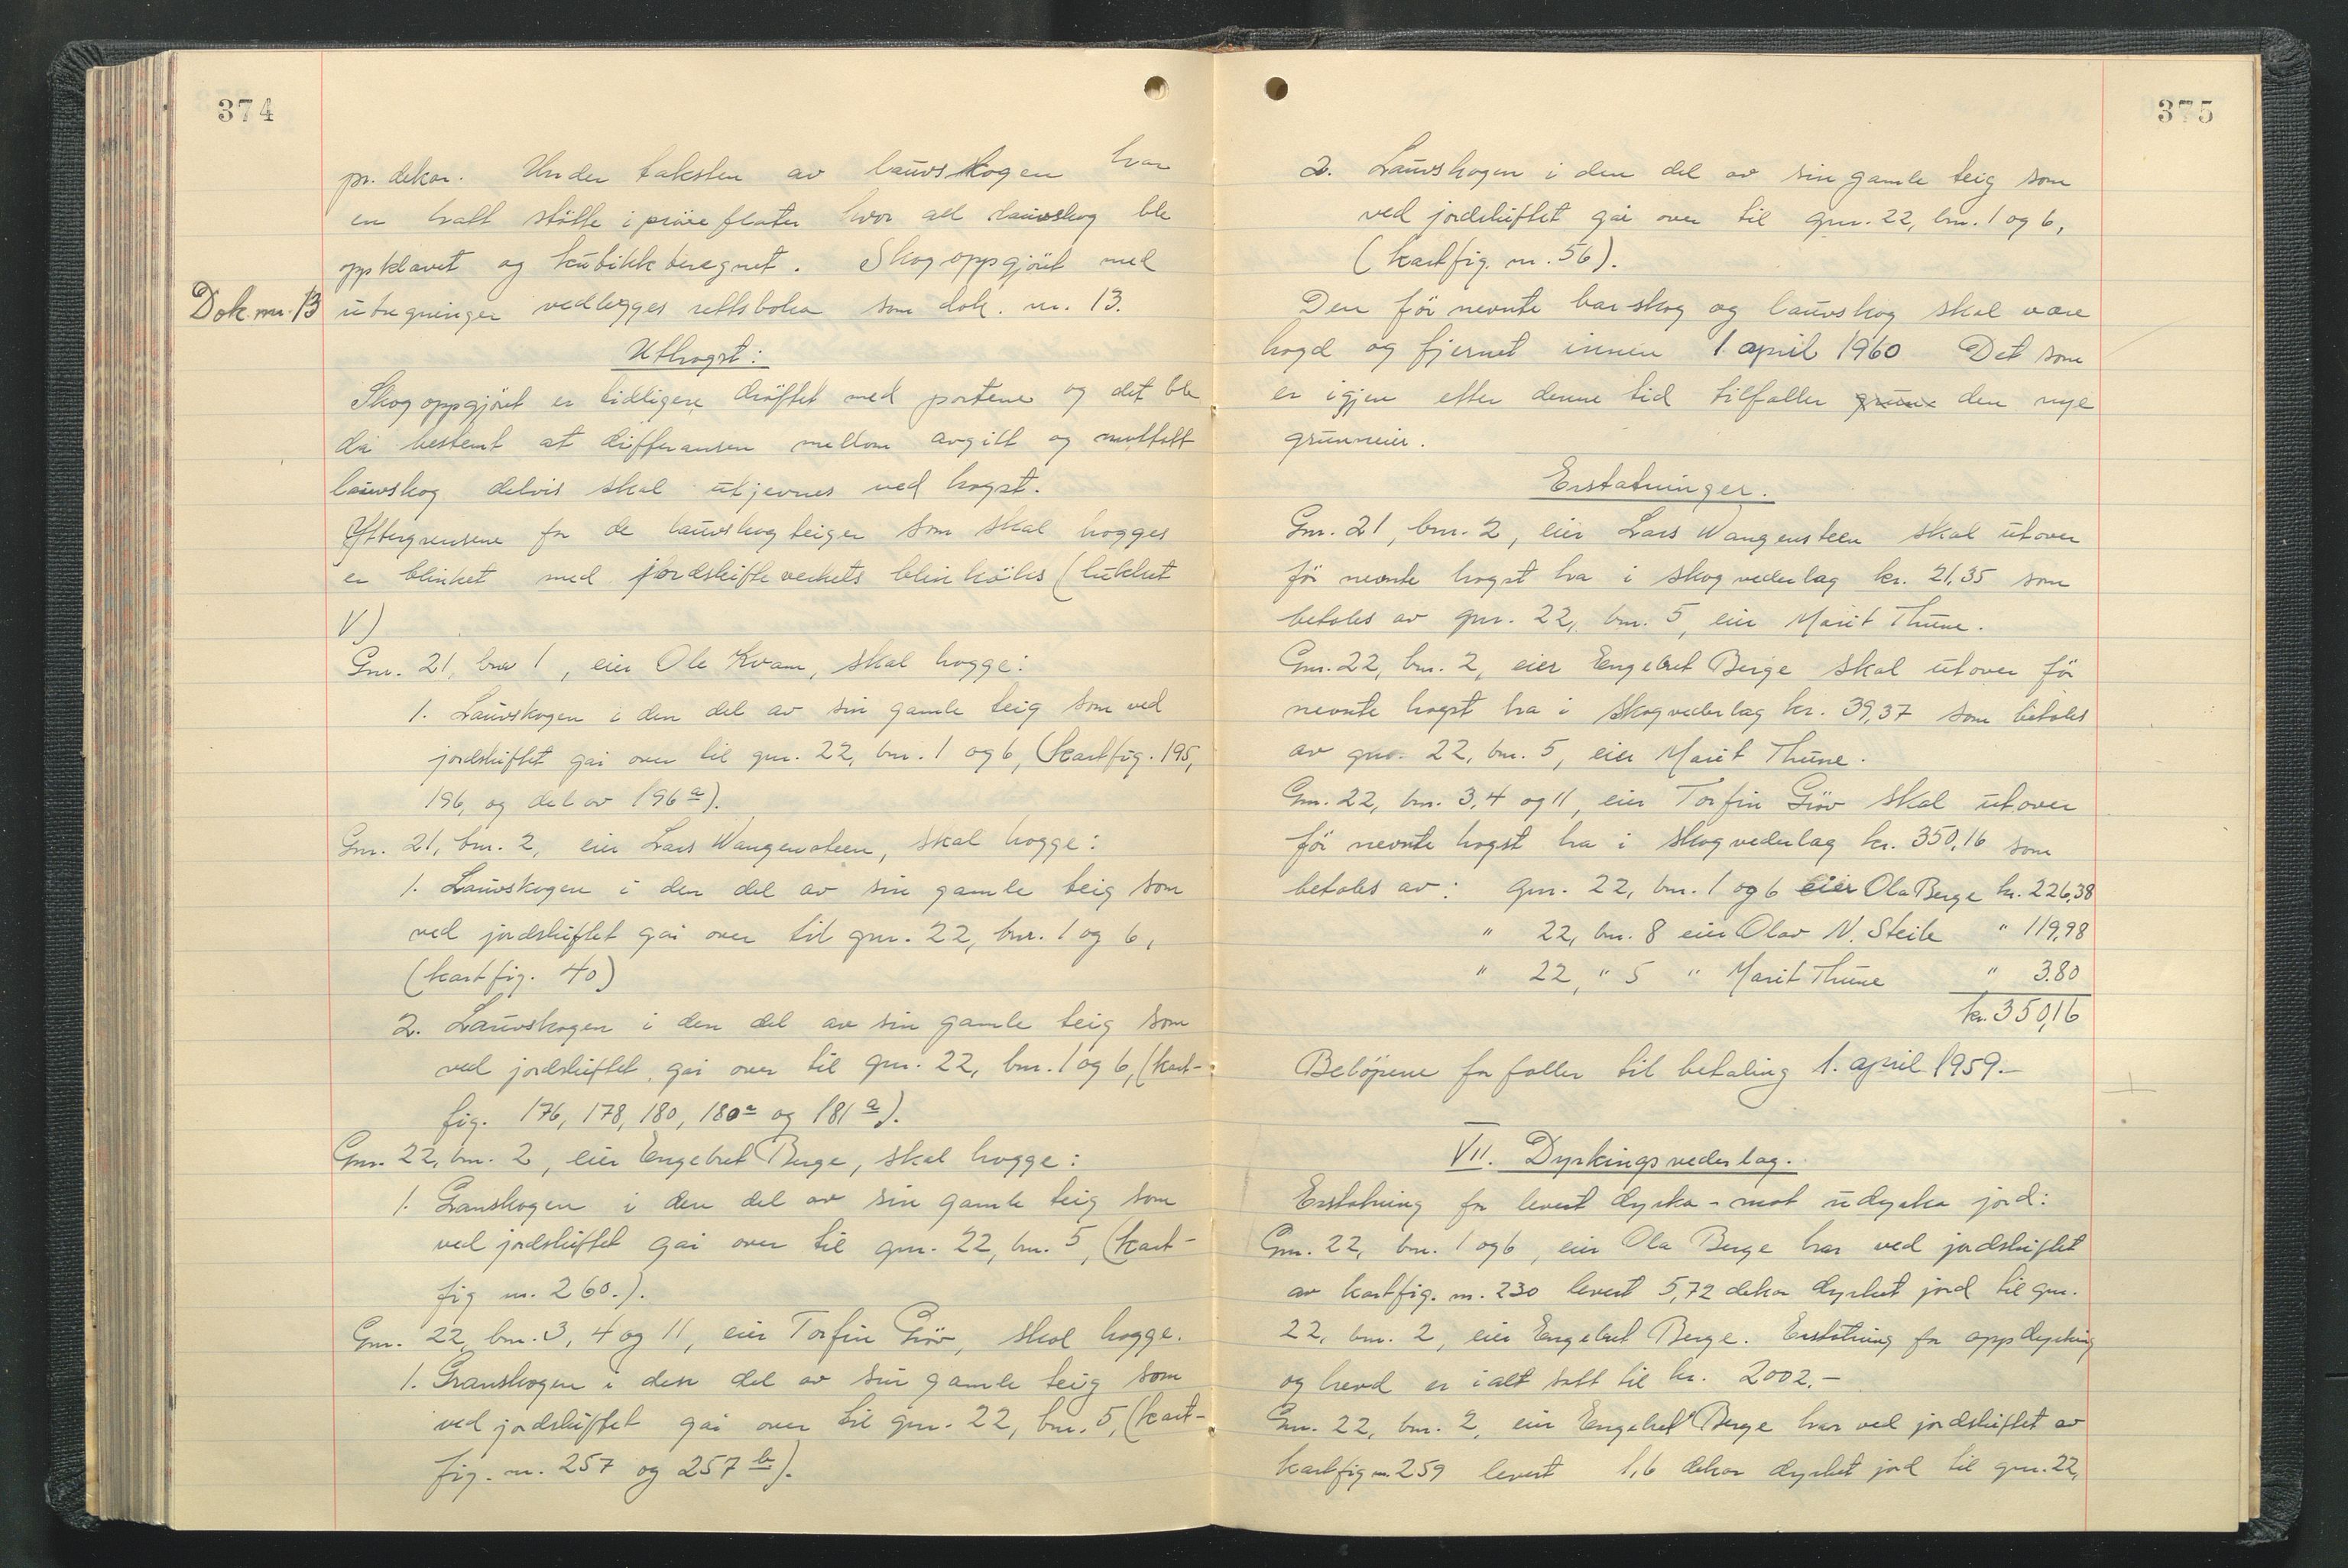 374
pr. dekar. Under taksten av lauvskogen har
en hatt støtte i prøveflater hvor all lauvskog ble
oppklavet og kubikkberegnet. Skogoppgjöret med
Dok. nr. 13 utregninger vedlegges rettsboka som dok. nr. 13.
Uthogst:
Skogoppgjöret er tidligere dröftet med partene og det ble
da bestemt at differansen mellom avgitt og mottatt
lauvskog delvis skal utjevnes ved hogst.
Yttergrensene for de lauvskogteiger som skal hogges
er blinket med jordskifteverkets blinköks (lukket
V)
Gnr. 21, bnr 1, eier Ole Kvam, skal hogge:
1. Lauvskogen i den del av sin gamle teig som ved
jordskiftet går over til gnr. 22, bnr. 1 og 6, (kartfig. 195,
196, og del av 196 a).
Gnr. 21, bnr. 2, eier Lars Wangensteen, skal hogge:
1. Lauvskogen i den del av sin gamle teig som
ved jordskiftet går over til gnr. 22, bnr. 1 og 6,
(kartfig. 40)
2. Lauvskogen i den del av sin gamle teig som
ved jordskiftet går over til gnr. 22, bnr. 1 og 6, (kart-
fig. 176, 178, 180, 180 a og 181 a).
Gnr. 22, bnr. 2, eier Engebret Berge, skal hogge:
1. Granskogen i den del av sin gamle teig som
ved jordskiftet går over til gnr. 22, bnr. 5, (kart-
fig nr. 260.).
Gnr. 22, bnr. 3, 4 og 11, eier Torfin Gröv, skal hogge.
1. Granskogen i den del av sin gamle teig som
ved jordskiftet går over til gnr. 22, bnr. 5, (kart-
fig. nr. 257 og 257 b).
375
2. Lauvskogen i den del av sin gamle teig som
ved jordskiftet går over til gnr. 22, bnr. 1 og 6,
(kartfig. nr. 56).
Den för nevnte barskog og lauvskog skal være
hogd og fjernet innen 1. april 1960 Det som
er igjen etter denne tid tilfaller grunn den nye
grunneier.
Erstatninger.
Gnr. 21, bnr. 2, eier Lars Wangensteen skal utover
för nevnte hogst ha i skogvederlag kr. 21,35 som
betales av gnr. 22, bnr. 5, eier Marit Thune.
Gnr. 22, bnr. 2, eier Engebret Berge skal utover för
nevnte hogst ha i skogvederlag kr. 39,37 som betales
av gnr. 22, bnr. 5, eier Marit Thune.
Gnr. 22, bnr. 3,4 og 11, eier Torfin Gröv skal utover
för nevnte hogst ha i skogvederlag kr. 350,16 som
betales av: gnr. 22, bnr. 1 og 6 eier Ola Berge kr. 226,38
" 22, bnr. 8 eier Olav N. Steile " 119,98
" 22, " 5 " Marit Thune " 3.80
kr. 350,16
Belöpene forfaller til betaling 1. april 1959.-
VII. Dyrkingsvederlag.
Erstatning for levert dyrka - mot udyrka jord:
Gnr. 22, bnr. 1 og 6, eier Ola Berge har ved jordskiftet
av kartfig. nr. 230 levert 5,72 dekar dyrket jord til gnr.
22, bnr. 2, eier Engebret Berge. Erstatning for oppdyrking
og hevd er i alt satt til kr. 2002.-
Gnr. 22, bnr. 2, eier Engebret Berge har ved jordskiftet av
kartfig nr. 259 levert 1,6 dekar dyrket jord til gnr. 22,